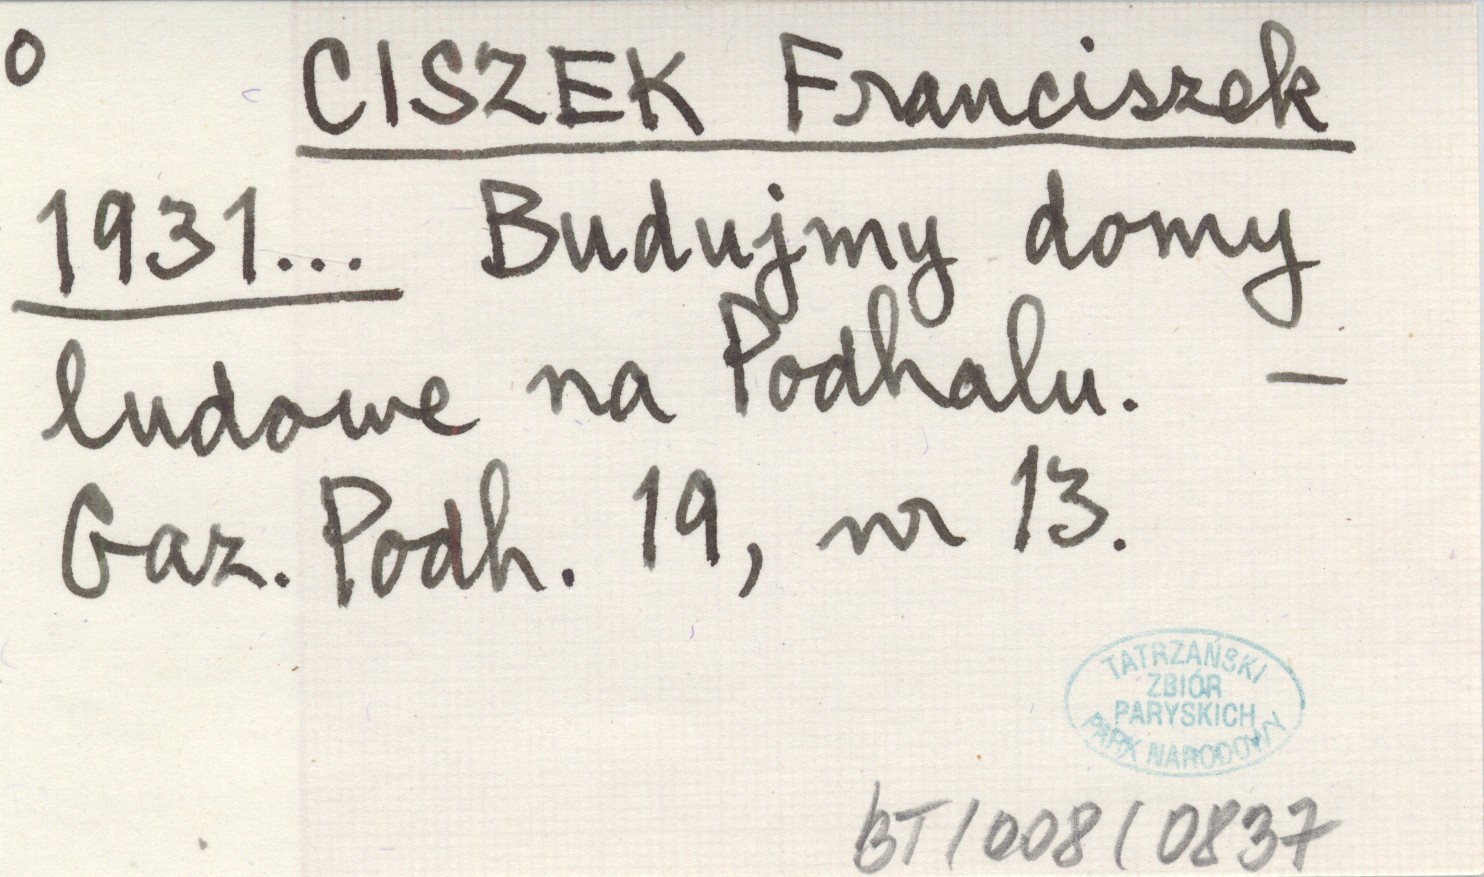 o CISZEK Franciszek
1931... Budujmy domy
ludowe na Podhalu. —
Gaz. Podh. 19, nr 13.
TATRZAŃSKI
ZBIÓR
PARYSKICH
PARK NARODOWY
BT/008/0837